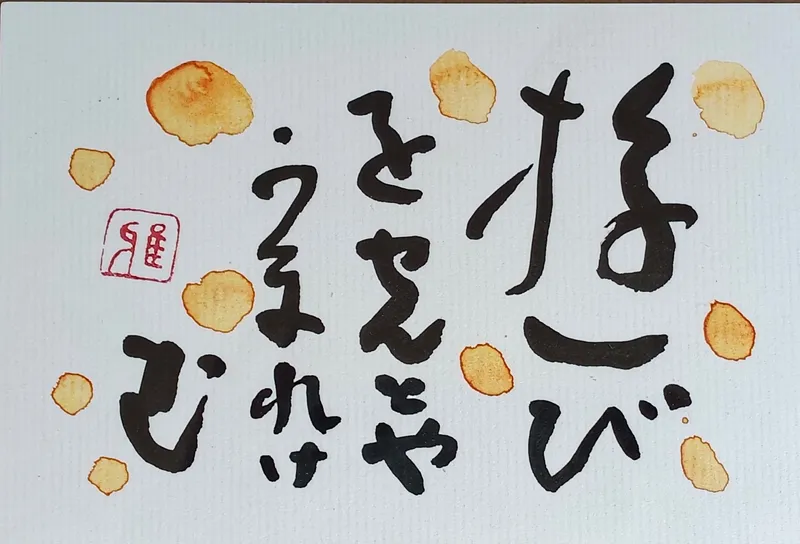 遊び
をせんとや
うまれけ
む
雅